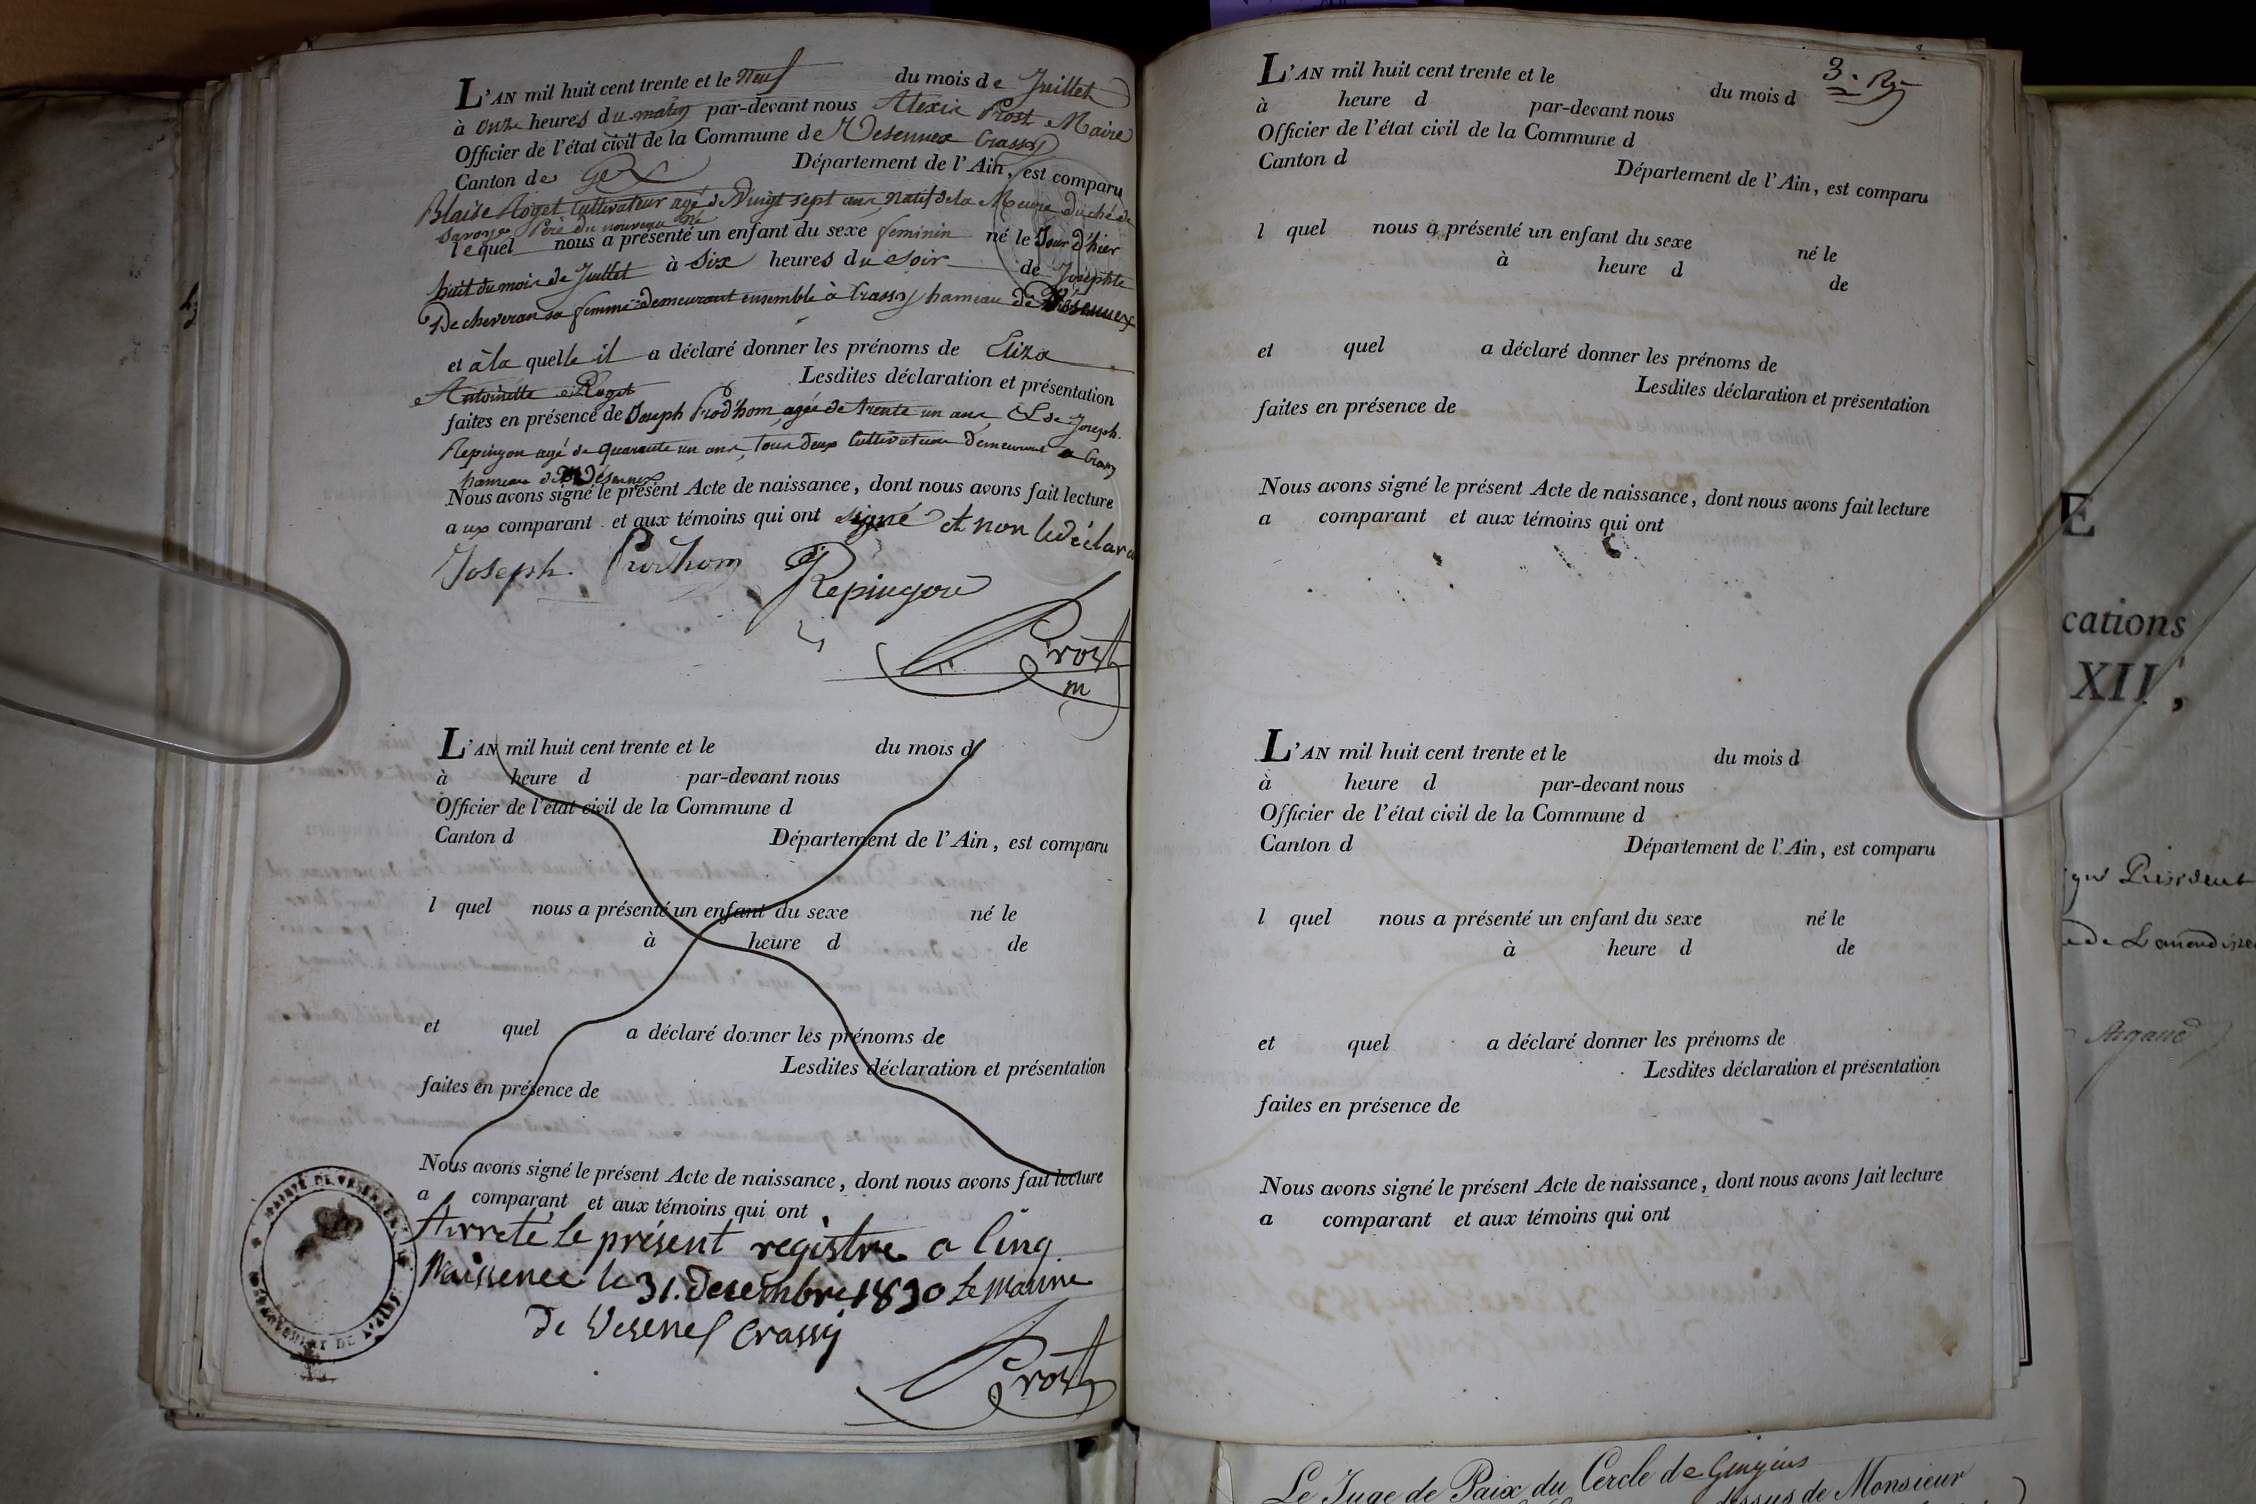 L'AN mil huit cent trente et le neuf du mois de Juillet
à onze heures du matin par-devant nous Alexis Prost Maire
Officier de l'état civil de la Commune de Vesennex Crassy
Canton de Gex Département de l'Ain, est comparu
Blaise Roget Cultivateur agé de Vingt sept ans, natif de la Meure duché de
Savoye Père du nouveau né
lequel nous a présenté un enfant du sexe feminin né le Jour d'hier
huit du mois de Juillet à Six heures du soir de Josephte
Decheveran sa femme demeurant ensemble à Crassy hameau de Vésennex
et à la quelle il a déclaré donner les prénoms de Eliza
Antoinette Roget Lesdites déclaration et présentation
faites en présence de Joseph Prod'hom agée de trente un ans Et de Joseph
Repingon agé de quarante un ans, tous deux Cultivateurs demeurant a Crassy
hameau de Vésennex
Nous avons signé le présent Acte de naissance, dont nous avons fait lecture
aux comparant et aux témoins qui ont signé et non le déclarant
Joseph Purhom Repingon
Prost
m
L'AN mil huit cent trente et le du mois d
à heure d par-devant nous
Officier de l'état civil de la Commune d
Canton d Département de l'Ain, est comparu
l quel nous a présenté un enfant du sexe né le
à heure d de
et quel a déclaré donner les prénoms de
Lesdites déclaration et présentation
faites en présence de
Nous avons signé le présent Acte de naissance, dont nous avons fait lecture
a comparant et aux témoins qui ont
Arreté le présent registre a Cinq
Naissence le 31. Decembre 1830 Le maire
de Vesenex Crassy
Prost
3.e
L'AN mil huit cent trente et le du mois d
à heure d par-devant nous
Officier de l'état civil de la Commune d
Canton d Département de l'Ain, est comparu
l quel nous a présenté un enfant du sexe né le
à heure d de
et quel a déclaré donner les prénoms de
Lesdites déclaration et présentation
faites en présence de
Nous avons signé le présent Acte de naissance, dont nous avons fait lecture
a comparant et aux témoins qui ont
L'AN mil huit cent trente et le du mois d
à heure d par-devant nous
Officier de l'état civil de la Commune d
Canton d Département de l'Ain, est comparu
l quel nous a présenté un enfant du sexe né le
à heure d de
et quel a déclaré donner les prénoms de
Lesdites déclaration et présentation
faites en présence de
Nous avons signé le présent Acte de naissance, dont nous avons fait lecture
a comparant et aux témoins qui ont
E
cations
XII,
Président
Le Juge de Paix du Cercle de Gingins
dessus de Monsieur